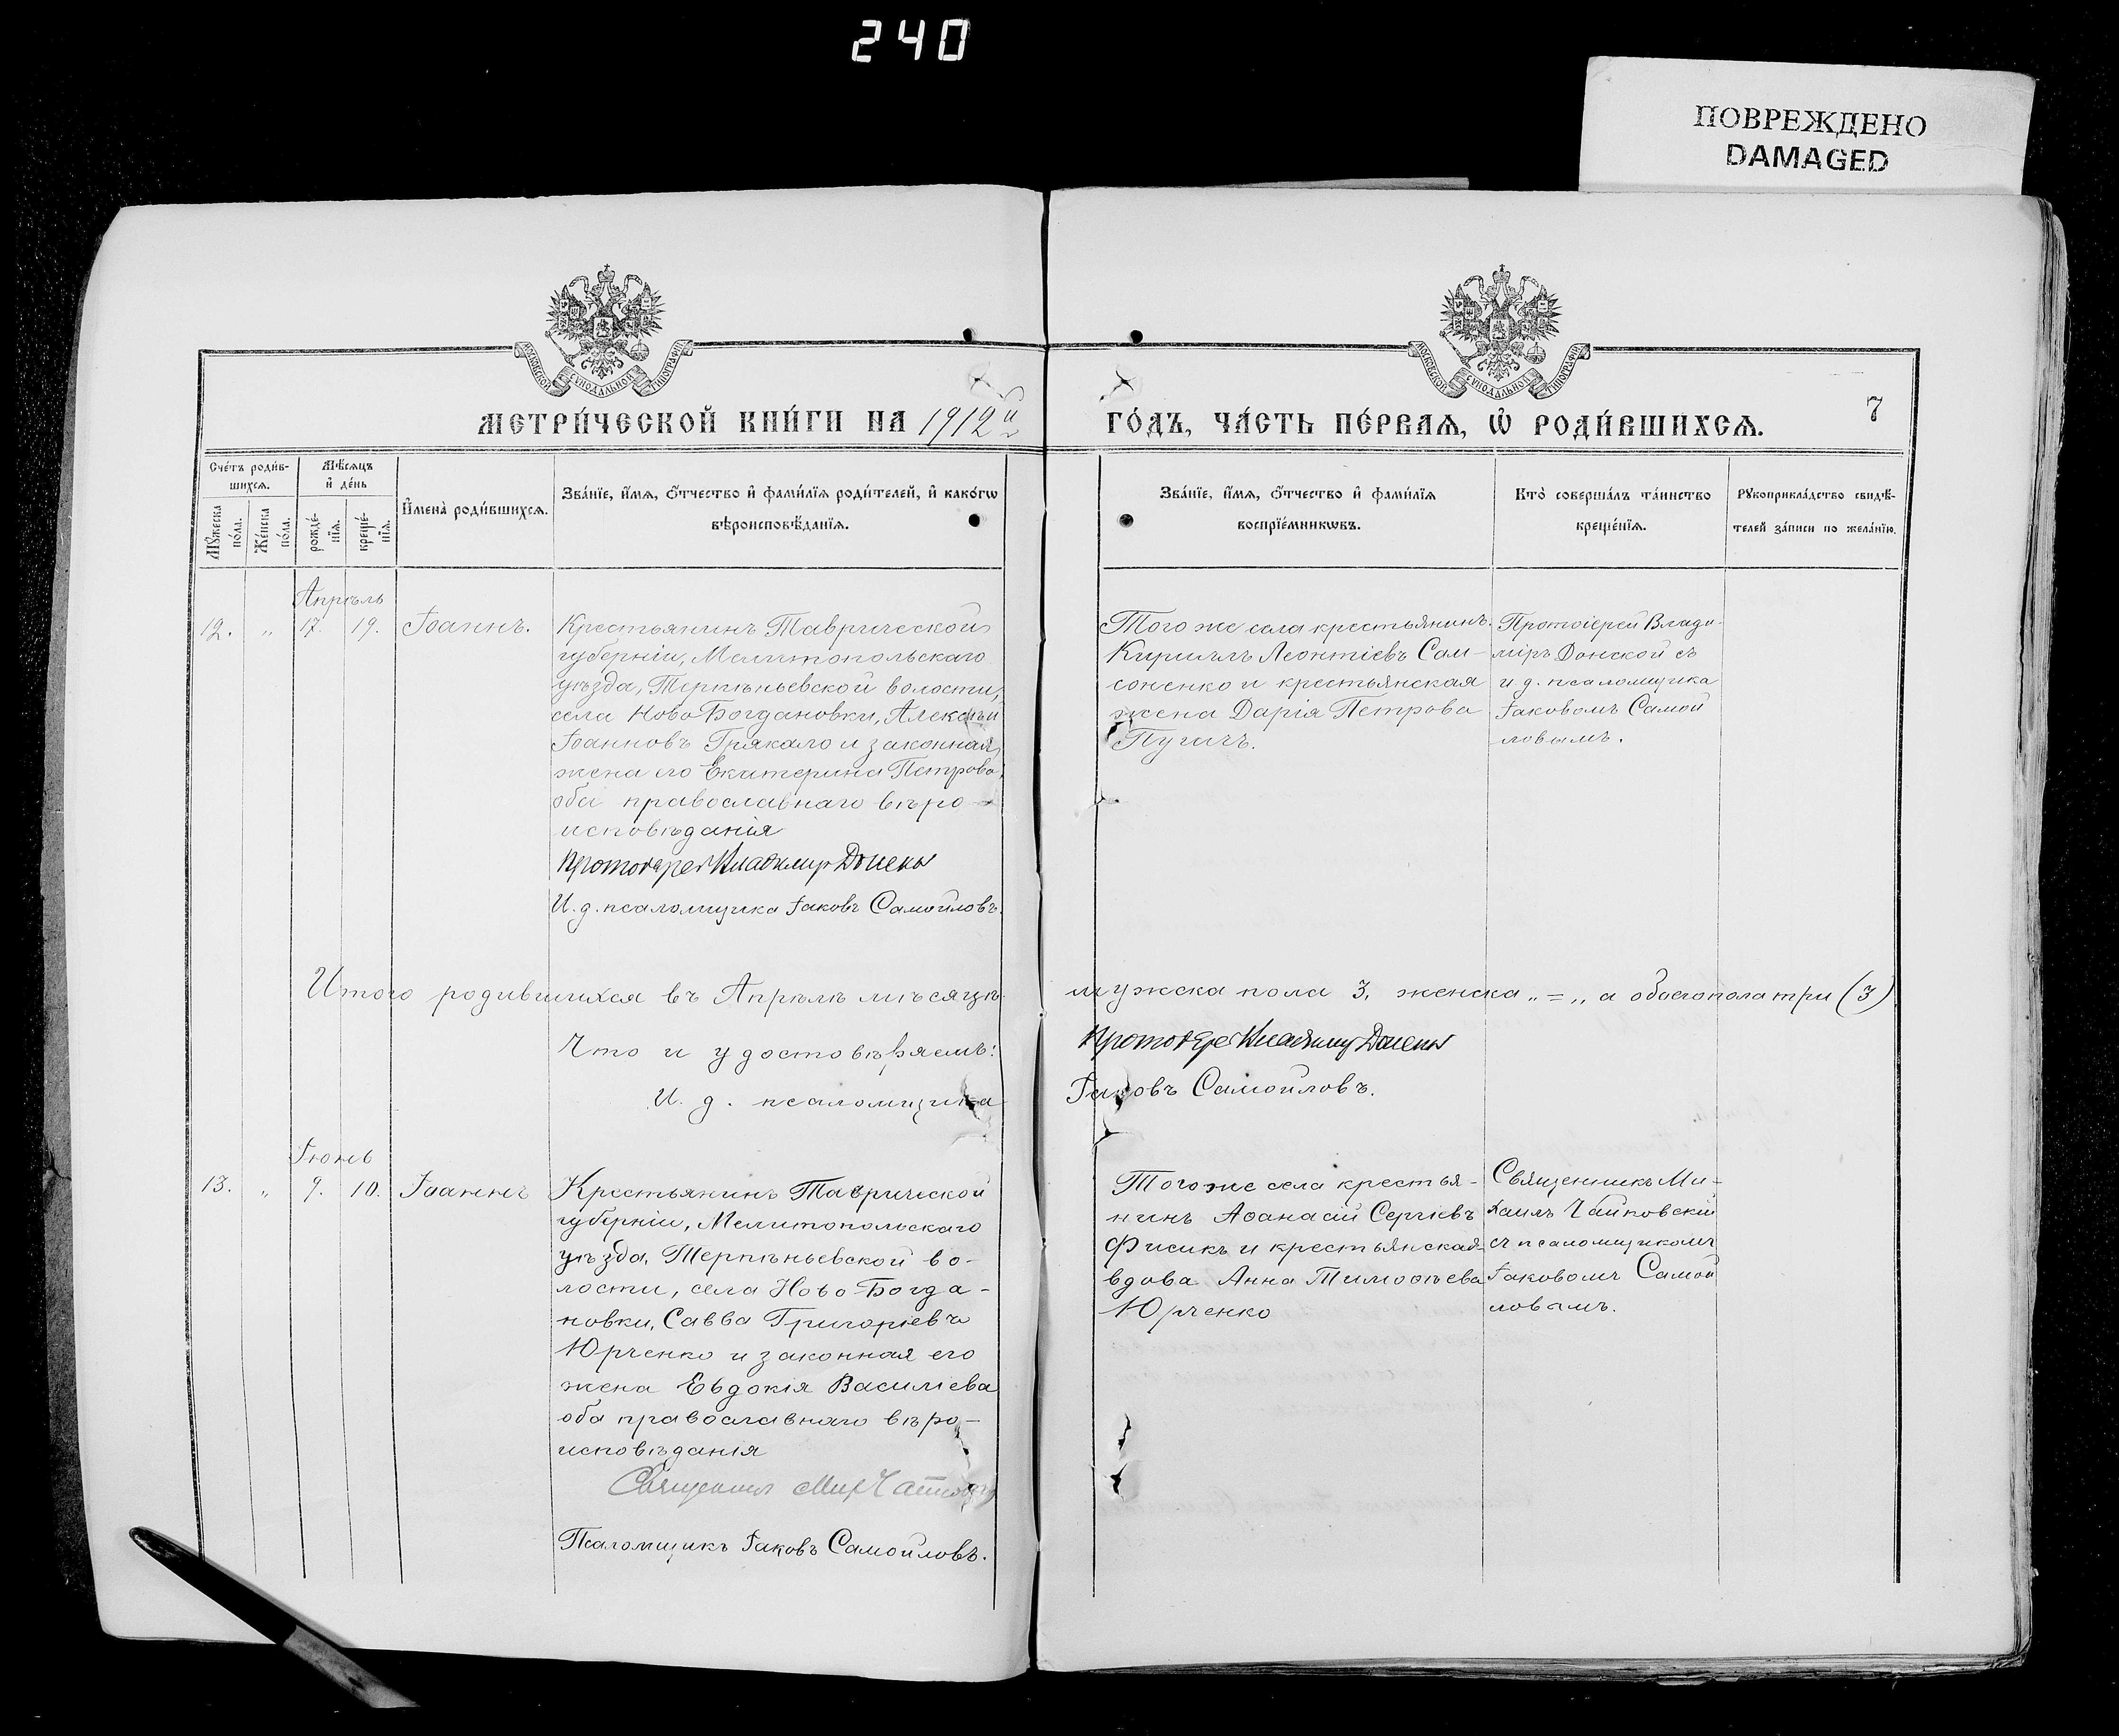 240
ПОВРЕЖДЕНО
DAMAGED
МОСКОВСКОЙ СѴНОДАЛЬНОЙ ТИПОГРАФІИ
МОСКОВСКОЙ СѴНОДАЛЬНОЙ ТИПОГРАФІИ
МЕТРИ́ЧЕСКОЙ КНИ́ГИ НА 1912й
ГО́ДЪ, ЧА́СТЬ ПЕ́РВАѦ, Ѡ҆ РОДИ́ВШИХСѦ.
7
Сче́тъ роди́в-
шихсѧ.
Мꙋ́жеска по́ла.
Же́нска по́ла.
Мѣ́сѧцъ
и҆ де́нь
рожде́-
нїѧ.
креще́-
нїѧ.
И҆мена̀ роди́вшихсѧ.
Зва́нїе, и҆́мѧ, ѻ҆́тчество и҆ фами́лїѧ роди́телей, и҆ како́гѡ
вѣроисповѣ́данїѧ.
Зва́нїе, и҆́мѧ, ѻ҆́тчество и҆ фами́лїѧ
воспрїе́мникѡвъ.
Кто̀ соверша́лъ та́инство
креще́нїѧ.
Рꙋкоприкла́дство свидѣ́-
телей за́писи по жела́нїю.
Апрѣль
12. „ 17. 19. Іоаннъ.
Крестьянинъ Таврической
губерніи, Мелитопольскаго
уѣзда, Терпѣньевской волости,
села Ново Богдановки, Алексѣй
Іоанновъ Грякало и законная
жена его Екатерина Петрова,
оба православнаго вѣро-
исповѣданія
Протоіерей Владимир Донской
И. д. псаломщика Іаковъ Самойловъ.
Того же села крестьянинъ
Кириллъ Леонтіевъ Сам-
соненко и крестьянская
жена Дарія Петрова
Пугачъ.
Протоіерей Влади-
міръ Донской съ
и д. псаломщика
Іаковомъ Самой
ловымъ.
Итого родившихся въ Апрѣлѣ мѣсяцѣ мужска пола 3, женска „ = „ а обоего пола три (3)
Что и удостовѣряемъ: Протоіерей Владимир Донской
И. д. псаломщика Іаковъ Самойловъ.
Іюнь
13. „ 9. 10. Іоаннъ
Крестьянинъ Таврической
губерніи, Мелитопольскаго
уѣзда, Терпѣньевской во-
лости, села Ново-Богда-
новки, Савва Григоріевъ
Юрченко и законная его
жена Евдокія Василіева
оба православнаго вѣро-
исповѣданія
Священник Мих Чайковскій
Псаломщикъ Іаковъ Самойловъ.
Того же села крестья-
нинъ Аѳанасій Сергіевъ
Фисикъ и крестьянская
вдова Анна Тимоѳѣева
Юрченко
Священникъ Ми-
хаилъ Чайковскій
съ псаломщикомъ
Іаковомъ Самой
ловымъ.